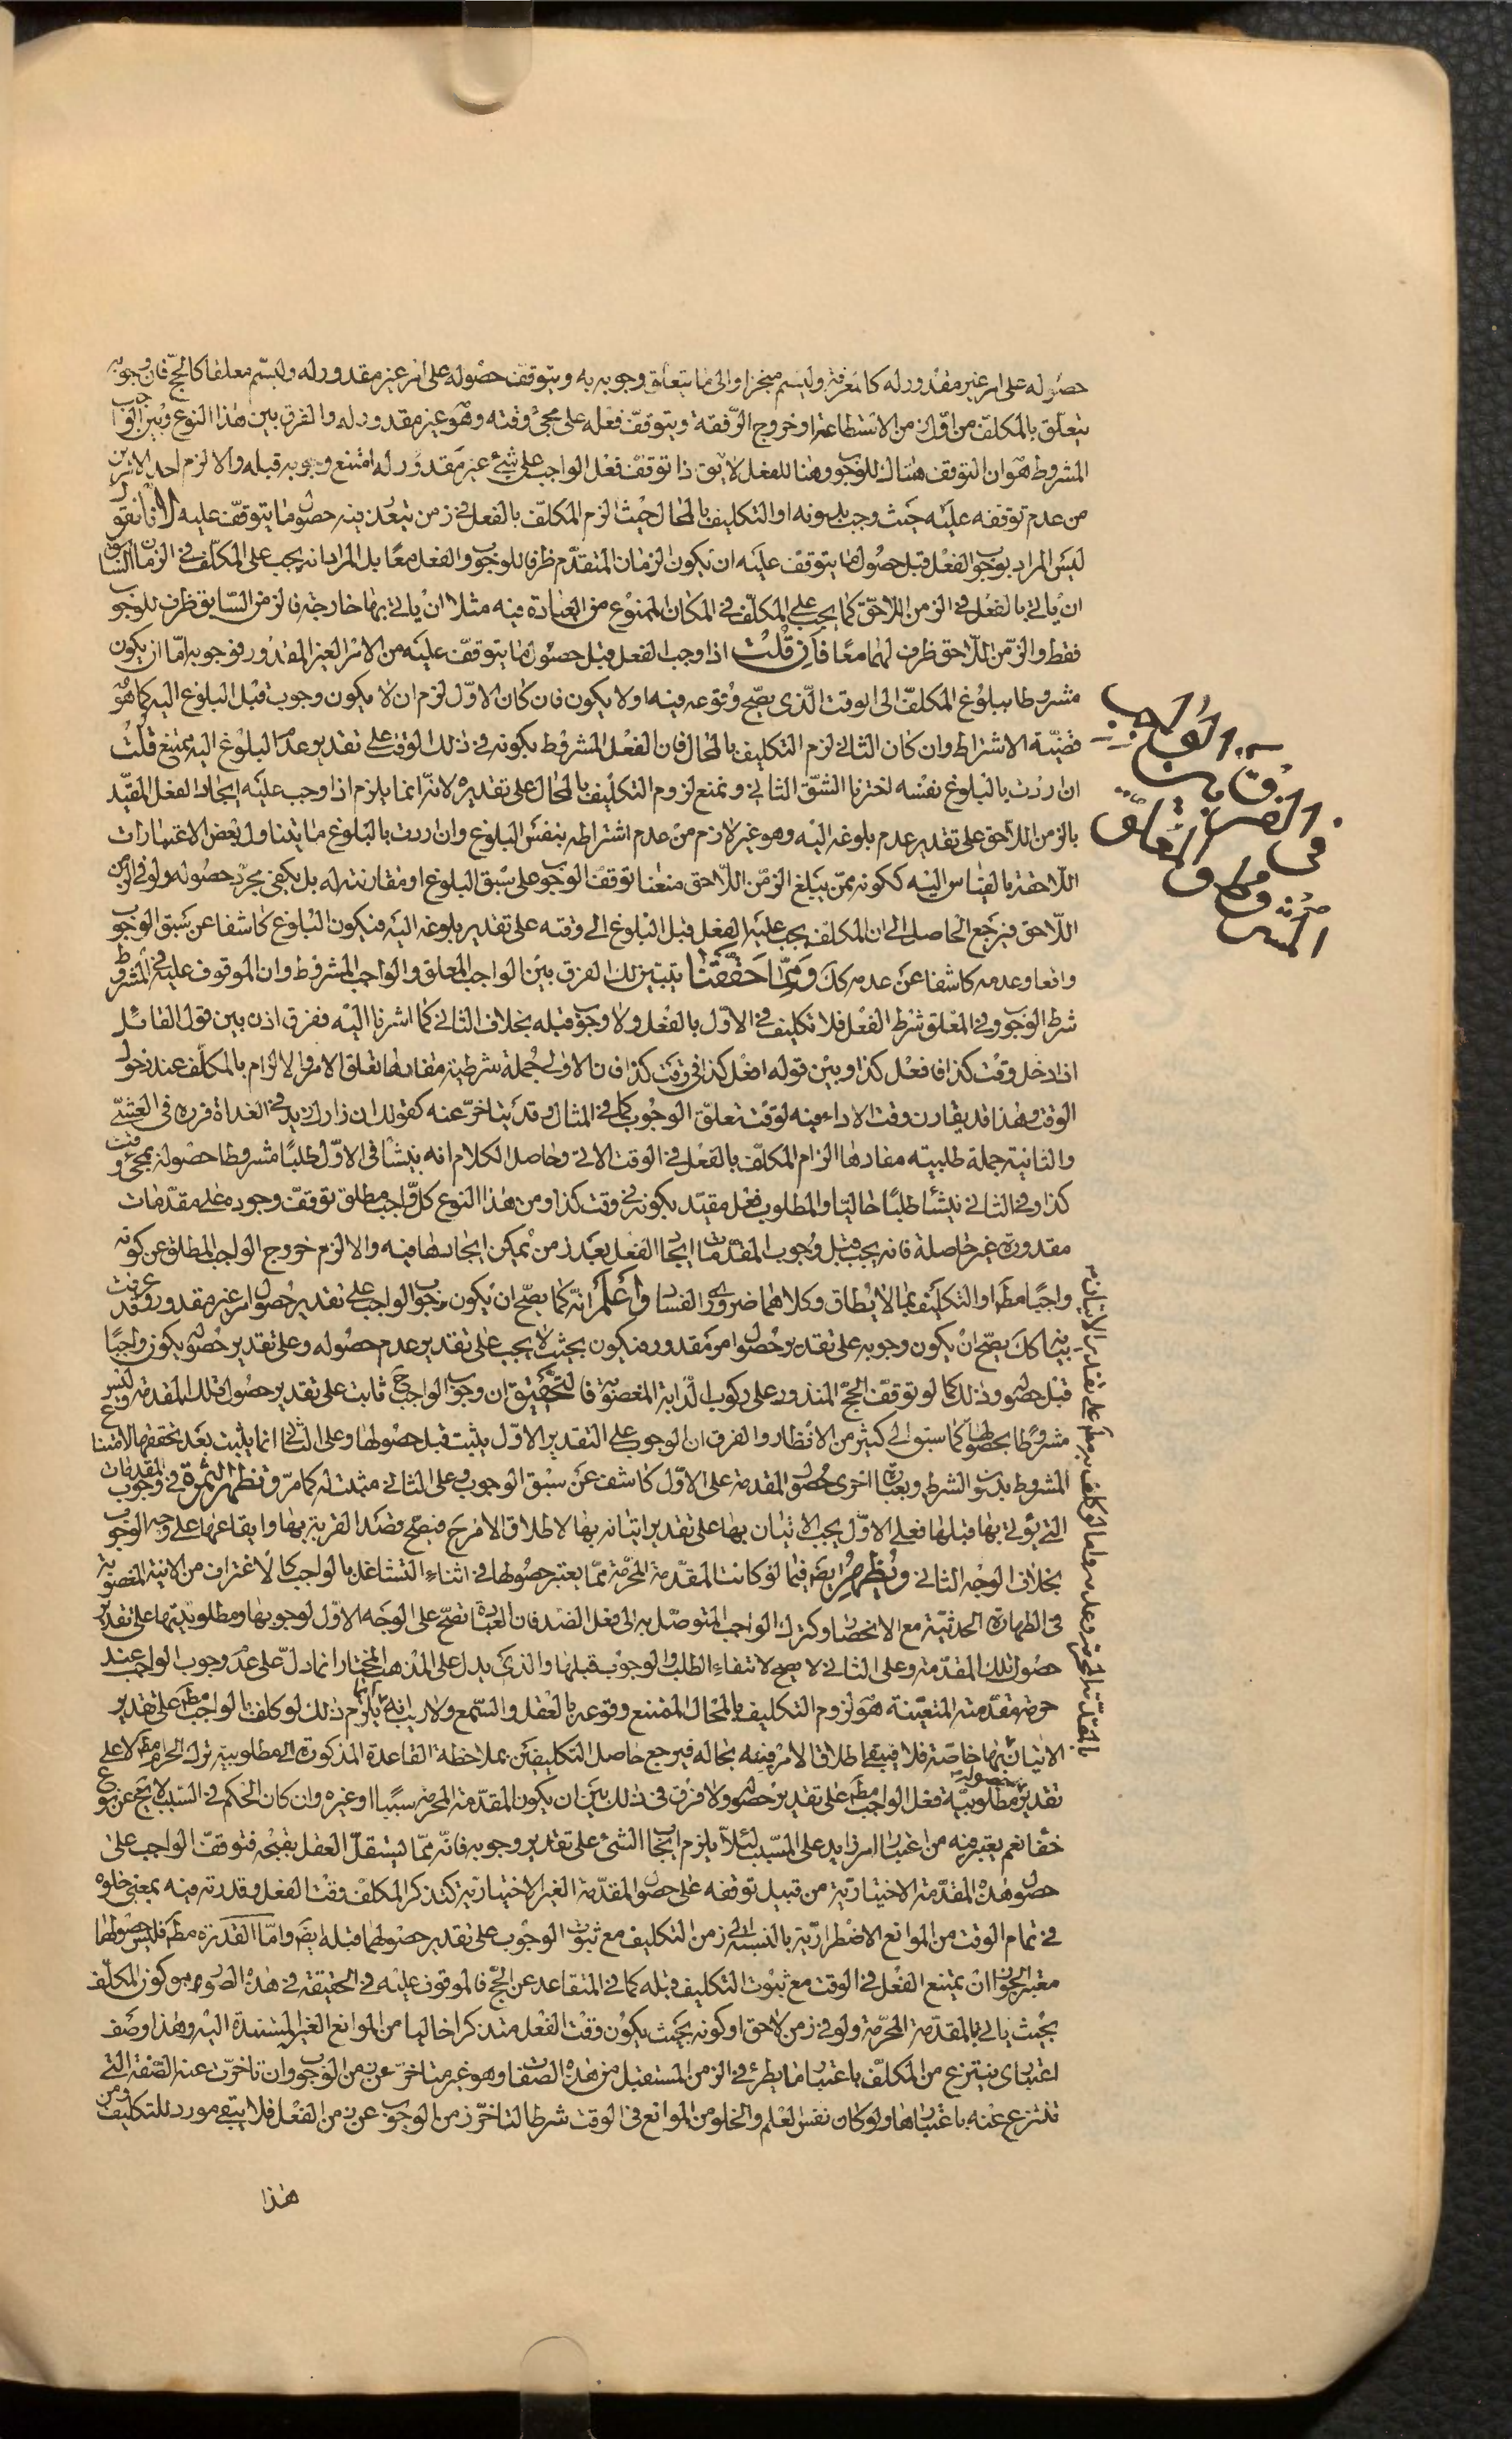 حصوله على امر غير مقدور له كالمعرفة وليسم منجزا والى ما يتعلق وجوبه به ويتوقف حصوله على امر غير مقدور له وليسم معلقا كالحج فان وجوبه
يتعلق بالمكلف من اول زمن الاستطاعة او خروج الرفقة ويتوقف فعله على مجئ وقته وهو غير مقدور له والفرق بين هذا النوع وبين الواجب
المشروط هو ان التوقف هناك للوجوب وهنا للفعل لا يق اذا توقف فعل الواجب على شئ غير مقدور له امتنع وجوبه قبله والا لزم احد الامرين
من عدم توقفه عليه حيث وجب بدونه او التكليف بالمحال حيث الزم المكلف بالفعل في زمن يتعذر فيه حصول ما يتوقف عليه لانا نقول
ليس المراد بوجوب الفعل قبل حصول ما يتوقف عليه ان يكون الزمان المتقدم ظرفا للوجوب والفعل معا بل المراد انه يجب على المكلف في الزمان السابق
ان ياتي بالفعل في الزمن اللاحق كما يجب على المكلف في المكان الممنوع من العبادة فيه مثلا ان ياتي بها خارجه فالزمن السابق ظرف للوجوب
فقط والزمن اللاحق ظرف لهما معا فان قلت اذا وجب الفعل قبل حصول ما يتوقف عليه من الامر الغير المقدور فوجوبه اما ان يكون
مشروطا ببلوغ المكلف الى الوقت الذي يصح وقوعه فيه او لا يكون فان كان الاول لزم ان لا يكون وجوب قبل البلوغ اليه كما هو
قضية الاشتراط وان كان الثاني لزم التكليف بالمحال فان الفعل المشروط بكونه في ذلك الوقت على تقدير عدم البلوغ اليه ممتنع قلت
ان اردت بالبلوغ نفسه اخترنا الشق الثاني ونمنع لزوم التكليف بالمحال على تقديره لانه انما يلزم اذا وجب عليه ايجاد الفعل المقيد
بالزمن اللاحق على تقدير عدم بلوغه اليه وهو غير لازم من عدم اشتراطه بنفس البلوغ وان اردت بالبلوغ ما يتناول بعض الاعتبارات
اللاحقة بالقياس اليه ككونه ممن يبلغ الزمن اللاحق منعنا توقف الوجوب على سبق البلوغ او مقارنته له بل يكفي مجرد حصوله ولو في الزمن
اللاحق فيرجع الحاصل الى ان المكلف يجب عليه الفعل قبل البلوغ الى وقته على تقدير بلوغه اليه فيكون البلوغ كاشفا عن سبق الوجوب
واقعا وعدمه كاشفا عن عدمه كك ومما حققنا يتبين لك الفرق بين الواجب المعلق والواجب المشروط وان الموقوف عليه في المشروط
شرط الوجوب وفي المعلق شرط الفعل فلا تكليف في الاول بالفعل ولا وجوب قبله بخلاف الثاني كما اشرنا اليه ففرق اذن بين قول القائل
اذا دخل وقت كذا فافعل كذا وبين قوله افعل كذا في وقت كذا فان الاولى جملة شرطية مفادها تعلق الامر والالزام بالمكلف عند دخول
الوقت وهذا قد يقارن وقت الاداء فيه لوقت تعلق الوجوب كما في المثال وقد يتاخر عنه كقولك ان زارك زيد في الغداة فزره في العشي
والثانية جملة طلبية مفادها الزام المكلف بالفعل في الوقت الاتي وحاصل الكلام انه ينشأ في الاول طلبا مشروطا حصوله بمجئ وقت
كذا وفي الثاني ينشأ طلبا حاليا والمطلوب فعل مقيد بكونه في وقت كذا ومن هذا النوع كل واجب مطلق توقف وجوده على مقدمات
مقدورة غير حاصلة فانه يجب قبل وجوب المقدمات ايجاد الفعل بعد زمن يمكن ايجادها فيه والا لزم خروج الواجب المطلق عن كونه
واجبا مط او التكليف بما لا يطاق وكلاهما ضروري الفساد واعلم انه كما يصح ان يكون وجوب الواجب على تقدير حصول امر غير مقدور وقد عرفت
بيانه كك يصح ان يكون وجوبه على تقدير حصول امر مقدور فيكون بحيث لا يجب على تقدير عدم حصوله وعلى تقدير حصوله يكون واجبا
قبل حصوله وذلك كما لو توقف الحج المنذور على ركوب الدابة المغصوبة فالتحقيق ان وجوب الواجب ح ثابت على تقدير حصول تلك المقدمة وليس
مشروطا بحصولها كما سبق الى كثير من الانظار والفرق ان الوجوب على التقدير الاول يثبت قبل حصولها وعلى الثاني انما يثبت بعد تحققها لامتناع
المشروط بدون الشرط وبعبارة اخرى حصول المقدمة على الاول كاشف عن سبق الوجوب وعلى الثاني مثبت له كما مر وتظهر الثمرة في وجوب المقدمات
التي يؤتى بها قبلها فعلى الاول يجب الاتيان بها على تقدير اتيانه بها لاطلاق الامر ح فيصح قصد القربة بها وايقاعها على وجه الوجوب
بخلاف الوجه الثاني وتظهر ايضا فيما لو كانت المقدمة المحرمة مما يعتبر حصولها في اثناء التشاغل بالواجب كالاغتراف من الانية المغصوبة
في الطهارة الحدثية مع الانحصار وكترك الواجب المتوصل به الى فعل الضد فان العبادة تصح على الوجه الاول لوجوبها ومطلوبيتها على تقدير
حصول تلك المقدمة وعلى الثاني لا تصح لانتفاء الطلب والوجوب قبلها والذي يدل على المذهب المختار انما دل على عدم وجوب الواجب عند
حرمة مقدمته المتعينة هو لزوم التكليف بالمحال الممتنع وقوعه بالعقل والسمع ولا ريب انه انما يلزم ذلك لو كلف بالواجب مط على تقدير
الاتيان بها خاصة فلا فيبقى اطلاق الامر فيه بحاله فيرجع حاصل التكليفين بملاحظة القاعدة المذكورة الى مطلوبية ترك الحرام مط لا على
تقدير حصوله ومطلوبية فعل الواجب مط على تقدير حصوله ولا فرق في ذلك بين ان يكون المقدمة المحرمة سببا او غيره وان كان الحكم في السبب لا يخ عن نوع
خفاء نعم يعتبر فيه من اعتبار امر زايد على المسبب لئلا يلزم ايجاب الشئ على تقدير وجوبه فانه مما يستقل العقل بقبحه فتوقف الواجب على
حصول هذه المقدمة الاختيارية من قبيل توقفه على حصول المقدمة الغير الاختيارية كتذكر المكلف وقت الفعل وقدرته فيه بمعنى خلوه
في تمام الوقت من الموانع الاضطرارية بالنسبة الى زمن التكليف مع ثبوت الوجوب على تقدير حصولهما قبله ايضا واما القدرة مط فليس حصولها
معتبرا لجواز ان يمتنع الفعل في الوقت مع ثبوت التكليف قبله كما في المتقاعد عن الحج فالموقوف عليه في الحقيقة في هذه الصور هو كون المكلف
بحيث ياتي بالمقدمة المحرمة ولو في زمن لاحق او كونه بحيث يكون وقت الفعل متذكرا خاليا من الموانع الغير المستندة اليه وهذا وصف
اعتباري ينتزع من المكلف باعتبار ما يطرء في الزمن المستقبل من هذه الصفات وهو غير متاخر عن زمن الوجوب وان تاخرت عنه الصفة التي
تنتزع عنه باعتبارها ولو كان نفس العلم والخلو من الموانع في الوقت شرطا لتاخر زمن الوجوب عن زمن الفعل فلا يبقى مورد للتكليف
هذا
في الفرق بين الواجب
المشروط والمعلق